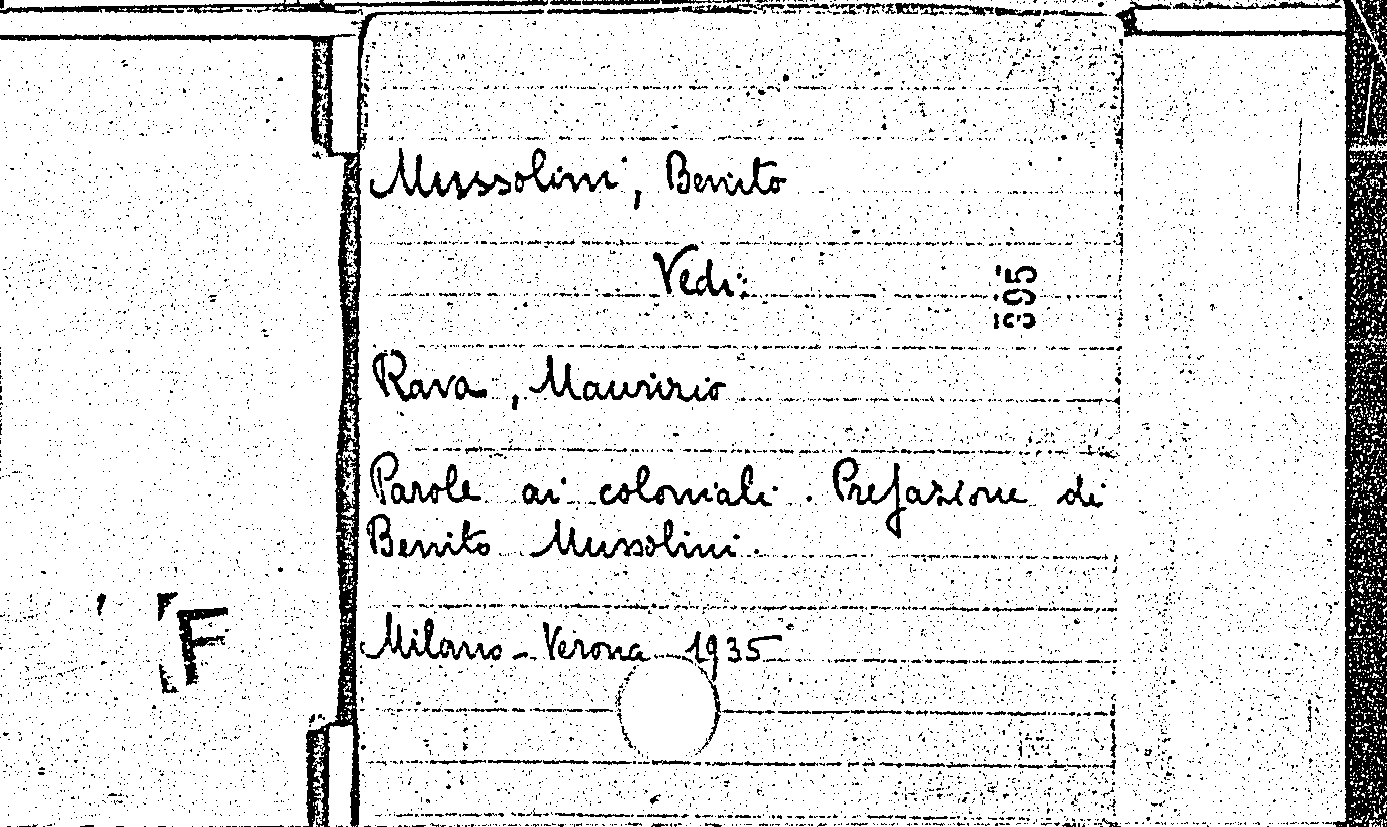 Mussolini, Benito
Vedi:
395
Rava, Maurizio
Parole ai coloniali. Prefazione di
Benito Mussolini.
Milano - Verona 1935
F